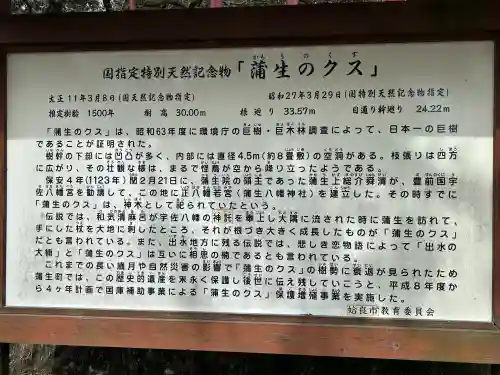 国指定特別天然記念物「蒲生のクス」
大正11年3月8日(国天然記念物指定) 昭和27年3月29日(国特別天然記念物指定)
推定樹齢 1500年 樹 高 30.00m 根 廻り 33.57m 目通り幹廻り 24.22m
「蒲生のクス」は、昭和63年度に環境庁の巨樹・巨木林調査によって、日本一の巨樹
であることが証明された。
樹幹の下部には凹凸が多く、内部には直径4.5m(約8畳敷)の空洞がある。枝張りは四方
に広がり、その壮観な様は、まるで怪鳥が空から降り立ったようである。
保安4年(1123年)閏2月21日に、蒲生院の領主であった蒲生上総介舜清が、豊前国宇
佐八幡宮を勧請して、この地に正八幡若宮(蒲生八幡神社)を建立した。その時すでに
「蒲生のクス」は、神木として祀られていたという。
伝説では、和気清麻呂が宇佐八幡の神託を奉上し大隅に流された時に蒲生を訪れて、
手にした杖を大地に刺したところ、それが根づき大きく成長したものが「蒲生のクス」
だとも言われている。また、出水地方に残る伝説では、悲しき恋物語によって「出水の
大楠」と「蒲生のクス」は互いに相思の楠であるとも言われている。
これまでの長い歳月や自然災害の影響で「蒲生のクス」の樹勢に衰退が見られたため
蒲生町では、この歴史的遺産を末永く保護し後世に伝え残していこうと、平成8年度か
ら4ヶ年計画で国庫補助事業による「蒲生のクス」保護増殖事業を実施した。
姶良市教育委員会